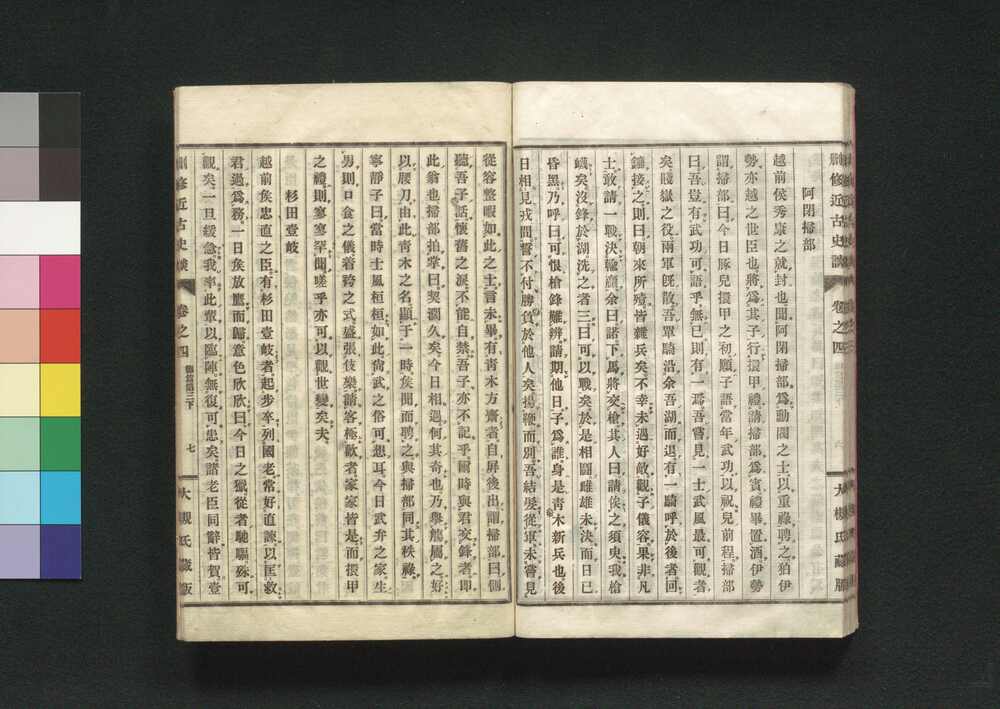 刪修近古史談 卷之四
大槻氏藏版
阿閉掃部
越前侯秀康之就封也聞阿閉掃部爲勳閥之士以重祿聘之狛伊
勢亦越之世臣也將爲其子行擐甲禮請掃部爲賓禮畢置酒伊勢
謂掃部曰今日豚兒擐甲之初願子語當年武功以祝兒前程掃部
曰吾豈有武功可語乎無已則有一焉吾嘗見一士武風最可觀者
矣賤嶽之役兩軍既散吾單騎沿余吾湖而退有一騎呼於後者回
鑣接之則曰朝來所殪皆雜兵矣不幸未遇好敵觀子儀容果非凡
士敢請一戰決輸贏余曰諾下馬將交槍其人曰請俟之須臾我槍
衊矣沒鋒於湖洗之者三曰可以戰矣於是相鬪雌雄未決而日已
昏黑乃呼曰可恨槍鋒難辨請期他日子爲誰身是靑木新兵也後
日相見戎間誓不付勝負於他人矣揚鞭而別吾結髮從軍未嘗見
從容整暇如此之士言未畢有靑木方齋者自屏後出謂掃部曰側
聽吾子話懷舊之淚不能自禁吾子亦不記乎爾時與君交鋒者即
此翁也掃部拍掌曰契濶久矣今日相遇何其奇也乃擧觴屬之好
以腰刀由此靑木之名顯于一時侯聞而聘之與掃部同其秩祿
寧靜子曰當時士風桓桓如此尙武之俗可想耳今日武弁之家生
男則口食之儀着袴之式盛張伎樂請客極歡者家家皆是而擐甲
之禮則寥寥罕聞嗟乎亦可以觀世變矣夫
杉田壹岐
越前侯忠直之臣有杉田壹岐者起步卒列國老常好直諫以匡救
君過爲務一日侯放鷹而歸意色欣欣曰今日之獵從者馳驅殊可
觀矣一旦緩急我率此輩以臨陣無復可患矣諸老臣同辭皆賀壹
刪修近古史談 卷之四 德篇第三下 七
大槻氏藏版